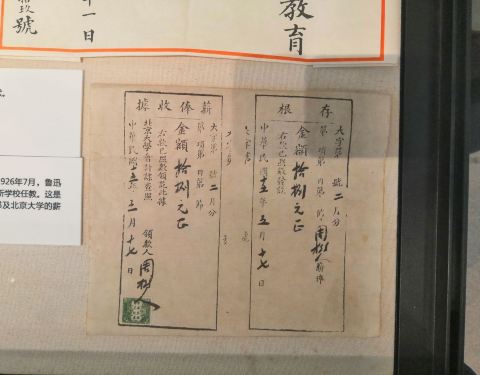 教育
年一日
拾玖號
存根
大字第 號二月份
第 項第 目第 節
金額拾捌元正
右款已照數發訖
中華民國十五年五月十七日
周樹人
薪俸收據
大字第 號二月份
第 項第 目第 節
金額拾捌元正
右款已照數領訖此據
北京大學會計課查照
領款人周樹人
中華民國十五年五月十七日
1926年7月，鲁迅
新学校任教。这是
及北京大学的薪